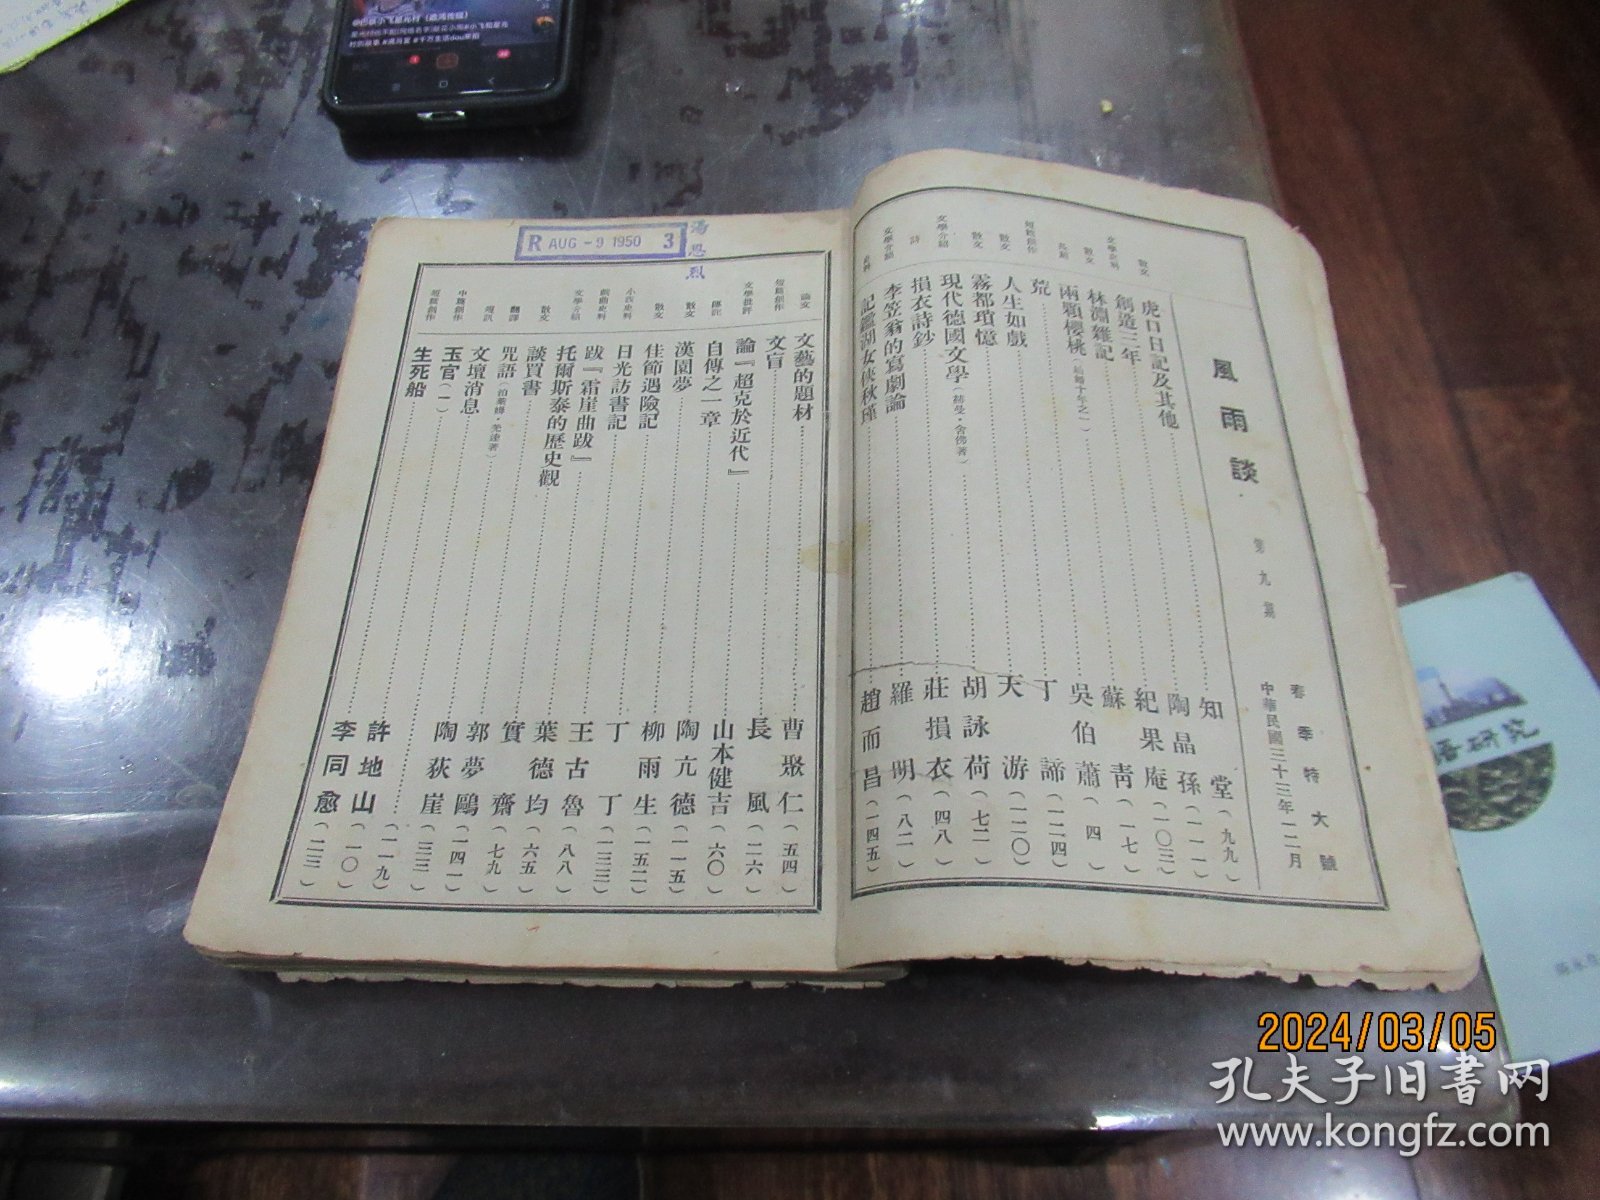 風雨談 第九期
春季特大號
中華民國三十三年一二月
散文 虎口日記及其他 知堂 (九九)
創造三年 陶晶孫 (一一一)
文學史料 林淵雜記 紀果庵 (一〇三)
散文 兩顆櫻桃 蘇青 (一七)
荒 吳伯蕭 (四)
短篇創作 人生如戲 丁諦 (一二四)
散文 霧都瑣憶 天游 (一二〇)
文學介紹 現代德國文學 胡詠荷 (七二)
詩 損衣詩鈔 莊損衣 (四八)
文學介紹 李笠翁的寫劇論 羅明 (八二)
史料 記鑑湖女俠秋瑾 趙而昌 (一四五)
R AUG -9 1950 3
湯恩烈
論文 文藝的題材 曹聚仁 (五四)
短篇創作 文盲 長風 (二六)
文學批評 論『超克於近代』 山本健吉 (六〇)
傳記 自傳之一章 陶亢德 (一一五)
散文 漢園夢 柳雨生 (一五二)
散文 佳節遇險記 丁丁 (一三三)
小說史料 日光訪書記 王古魯 (八八)
戲曲史料 跋『霜崖曲跋』 葉德均 (六五)
文學介紹 托爾斯泰的歷史觀 實齋 (七九)
散文 談買書 郭夢鷗 (一四一)
翻譯 咒語 陶荻崖 (三三)
短訊 文壇消息 (一一九)
中篇創作 玉官(一) 許地山 (一〇)
短篇創作 生死船 李同愈 (二三)
語研究
2024/03/05
孔夫子旧書网
www.kongfz.com